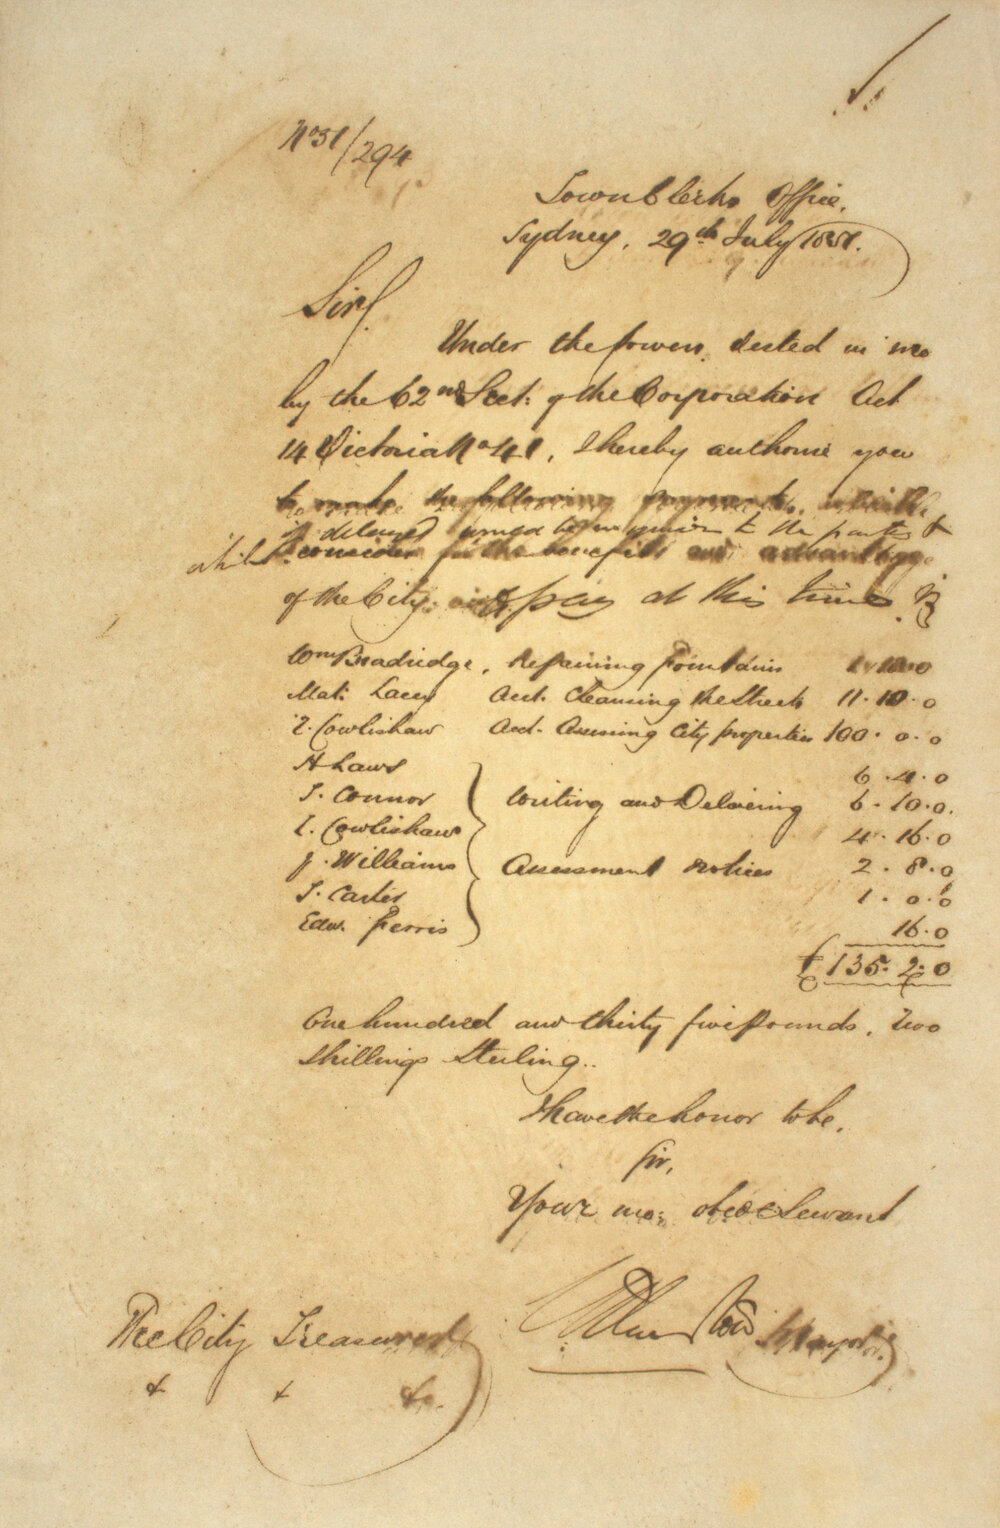 No 51/294
Town Clerks Office,
Sydney, 29th July 1851.
Sir,
Under the powers vested in me
by the 62nd Sect: of the Corporation Act
14 Victoria No 41, I hereby authorise you
to make the following payments, which
if delayed would be injurious to the parties &
which I consider for the benefit and advantage
of the City, to pay at this time. Viz
Wm Bradridge, Repairing Fountains 1.18.0
Mat: Lacey Acct. Cleansing the Streets 11.10.0
T. Cowlishaw Acct. Assessing City properties 100.0.0
H Laws 6.4.0
T. Connor Writing and Delivering 6.10.0.
T. Cowlishaw 4.16.0
J. Williams Assessment notices 2.8.0
T. Carter 1.0.0
Edw. Ferris 16.0
£135.2.0
One hundred and thirty five Pounds, Two
Shillings Sterling..
I have the honor to be,
Sir,
Your mo: obedt Servant
Mayor
The City Treasurer
& & &c.